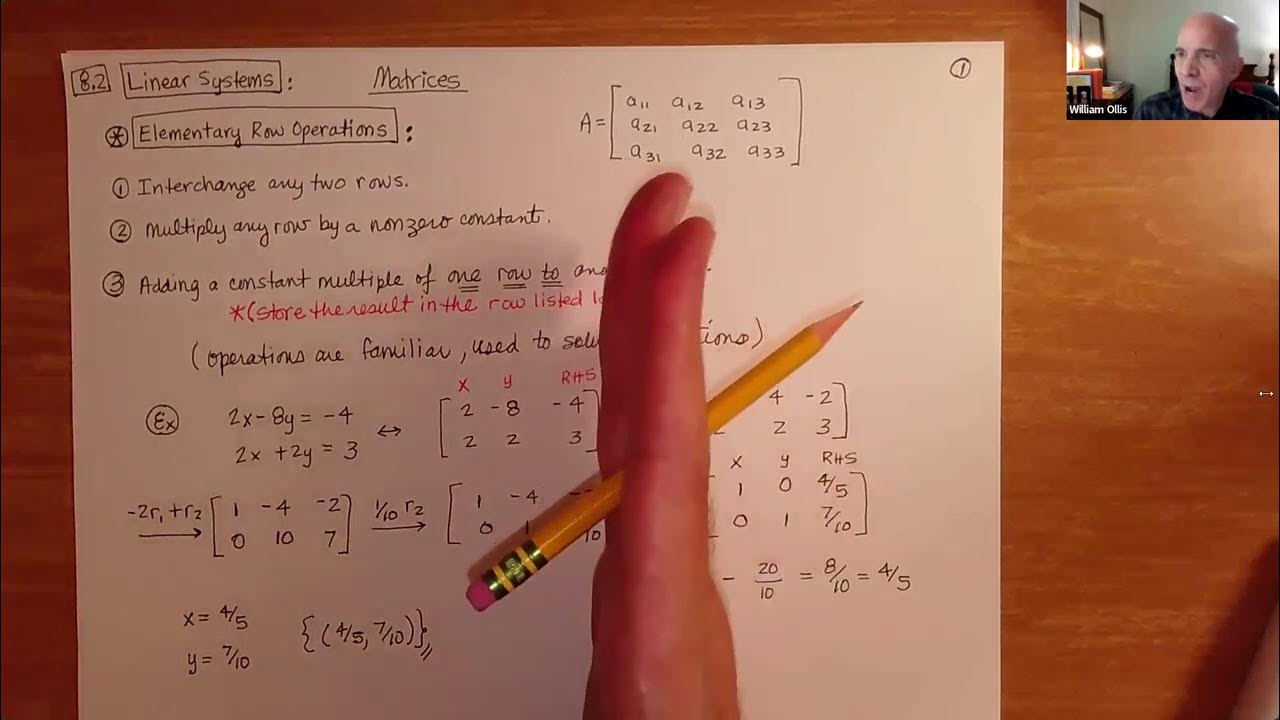 8.2 Linear Systems: Matrices
①
William Ollis
A = [ a11 a12 a13
a21 a22 a23
a31 a32 a33 ]
* Elementary Row Operations:
① Interchange any two rows.
② Multiply any row by a nonzero constant.
③ Adding a constant multiple of one row to
*(store the result in the row listed
(operations are familiar, used to
Ex 2x - 8y = -4
2x + 2y = 3
↔
x y RHS
[ 2 -8 -4
2 2 3
4 -2
2 3 ]
-2r1 + r2 → [ 1 -4 -2
0 10 7 ]
1/10 r2 → [ 1 -4
0 1 10
x y RHS
1 0 4/5
0 1 7/10 ]
- 20/10 = 8/10 = 4/5
x = 4/5
y = 7/10
{(4/5, 7/10)}